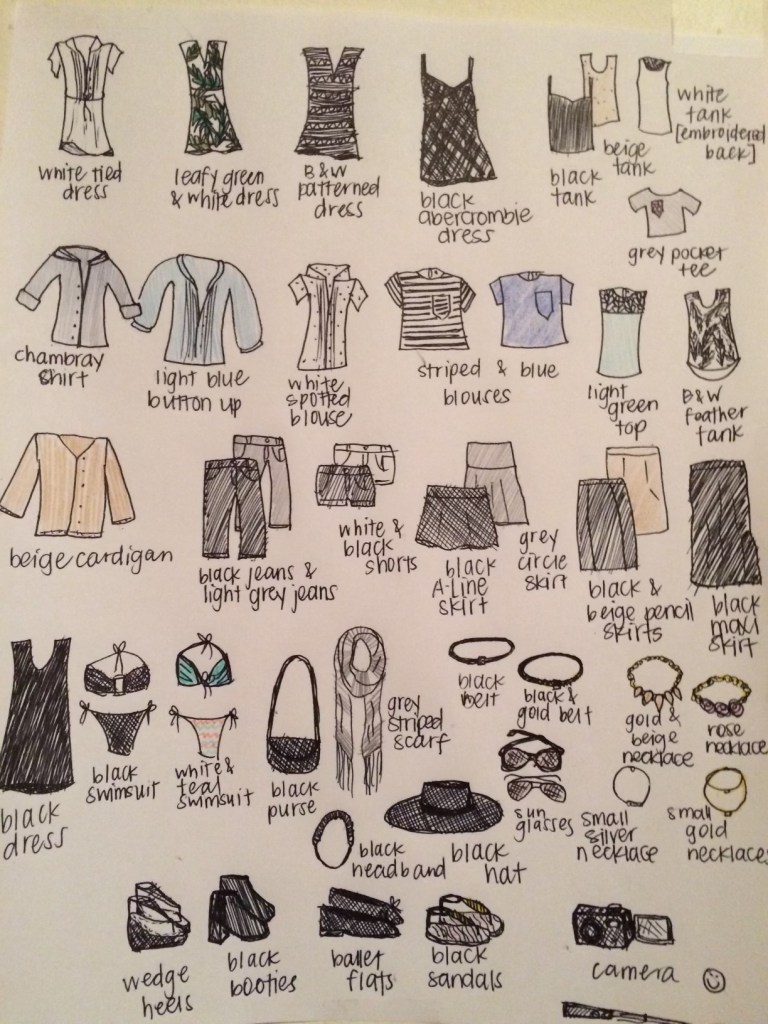 white tied
dress
leafy green
& white dress
B&W
patterned
dress
black
abercrombie
dress
black
tank
beige
tank
white
tank
[embroidered
back]
grey pocket
tee
chambray
shirt
light blue
button up
white
spotted
blouse
striped & blue
blouses
light
green
top
B&W
feather
tank
beige cardigan
black jeans &
light grey jeans
white &
black
shorts
black
A-Line
skirt
grey
circle
skirt
black &
beige pencil
skirts
black
maxi
skirt
black
dress
black
swimsuit
white &
teal
swimsuit
black
purse
grey
striped
scarf
black
belt
black &
gold belt
gold &
beige
necklace
rose
necklace
black
headband
black
hat
sun
glasses
small
silver
necklace
small
gold
necklaces
wedge
heels
black
booties
ballet
flats
black
sandals
camera